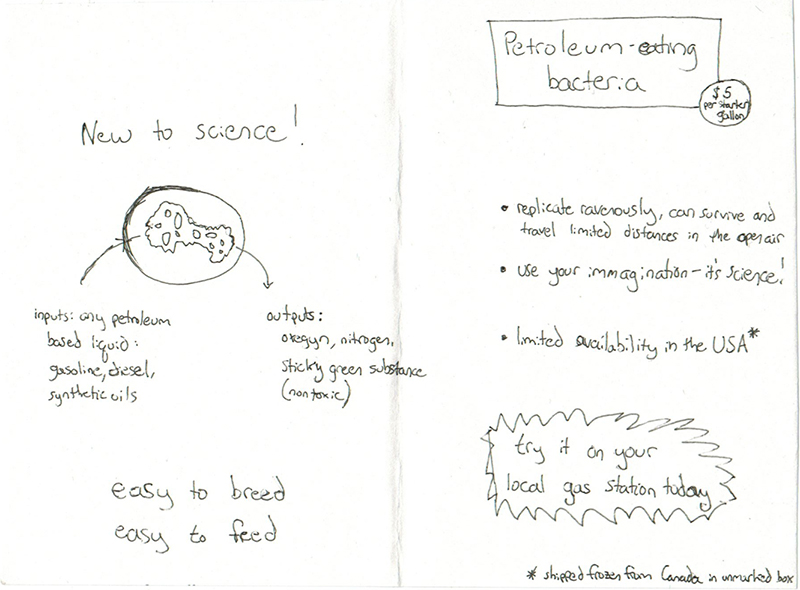 New to science!
inputs: any petroleum
based liquid:
gasoline, diesel,
synthetic oils
outputs:
oxegyn, nitrogen,
sticky green substance
(nontoxic)
easy to breed
easy to feed
Petroleum-eating
bacteria
$5
per starter
gallon
• replicate ravenously, can survive and
travel limited distances in the open air
• use your immagination - it's science!
• limited availability in the USA*
try it on your
local gas station today
* shipped frozen from Canada in unmarked box